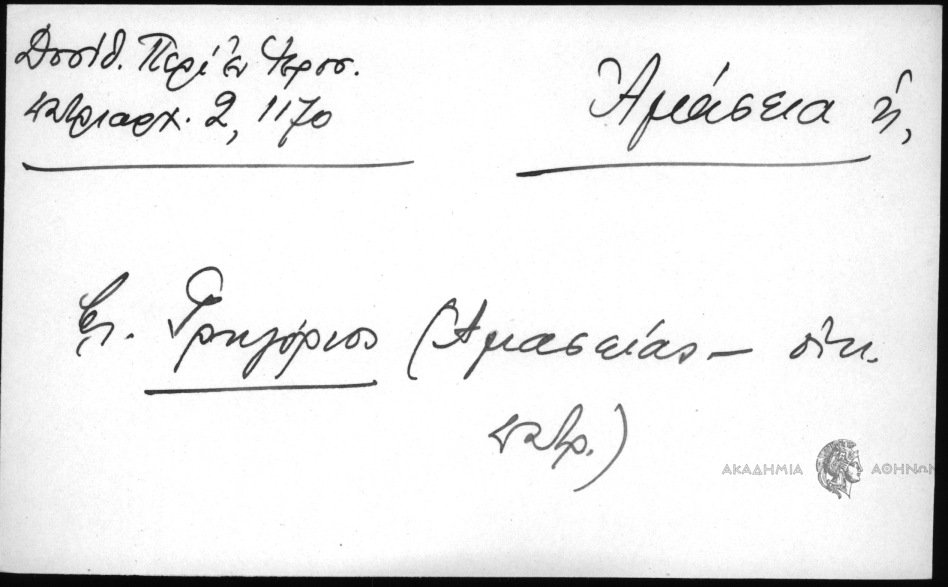 Δοσίθ. Περὶ ἐν Ἱεροσ.
πατριαρχ. 2, 1170
Ἀμάσεια ἡ,
βλ. Γρηγόριος (Ἀμασείας – οἰκ.
πατρ.)
ΑΚΑΔΗΜΙΑ ΑΘΗΝΩΝ